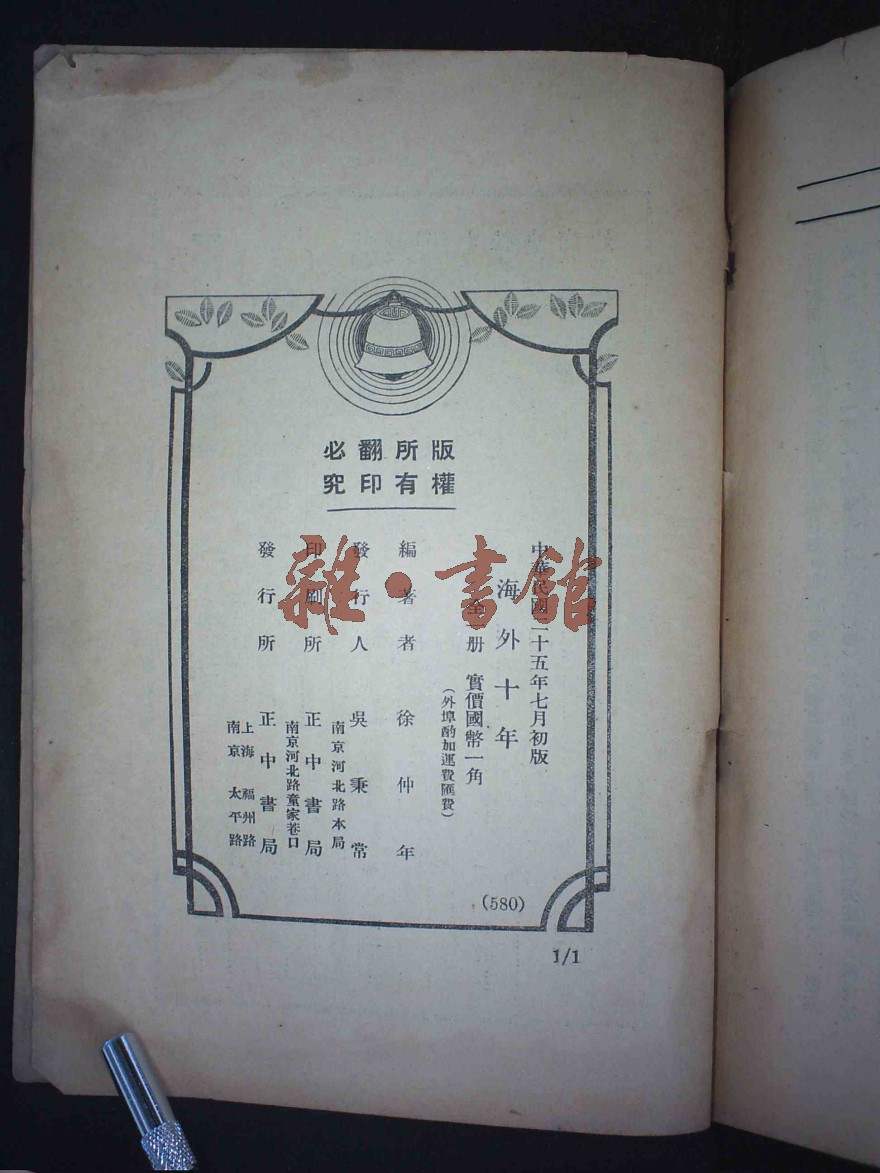 版權
所有
翻印
必究
中華民國二十五年七月初版
海外十年
全一册 實價國幣一角
(外埠酌加運費匯費)
編著者 徐仲年
發行人 吳秉常
南京河北路本局
印刷所 正中書局
南京河北路童家巷口
發行所 正中書局
上海福州路
南京太平路
(580)
1/1
雜·書館